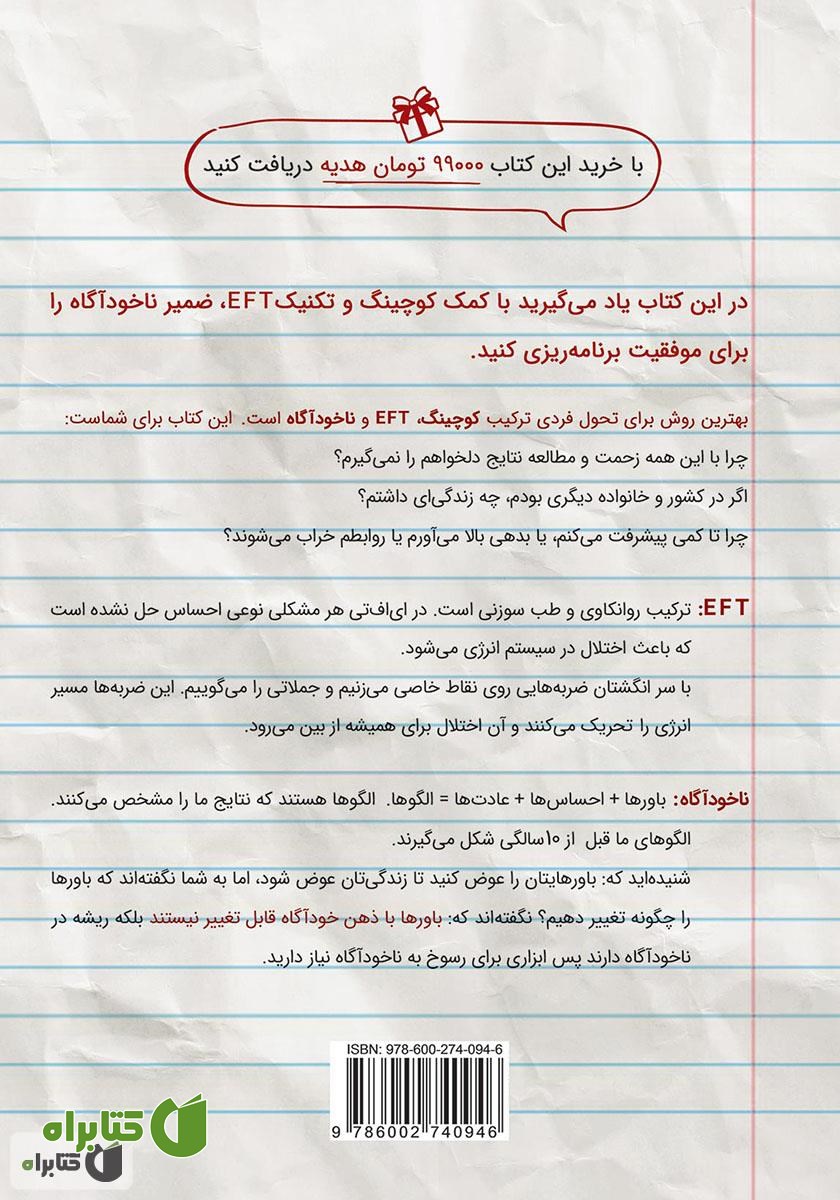 با خرید این کتاب ۹۹۰۰۰ تومان هدیه دریافت کنید
در این کتاب یاد می‌گیرید با کمک کوچینگ و تکنیکEFT، ضمیر ناخودآگاه را
برای موفقیت برنامه‌ریزی کنید.
بهترین روش برای تحول فردی ترکیب کوچینگ، EFT و ناخودآگاه است. این کتاب برای شماست:
چرا با این همه زحمت و مطالعه نتایج دلخواهم را نمی‌گیرم؟
اگر در کشور و خانواده دیگری بودم، چه زندگی‌ای داشتم؟
چرا تا کمی پیشرفت می‌کنم، یا بدهی بالا می‌آورم یا روابطم خراب می‌شوند؟
EFT: ترکیب روانکاوی و طب سوزنی است. در ای‌اف‌تی هر مشکلی نوعی احساس حل نشده است
که باعث اختلال در سیستم انرژی می‌شود.
با سر انگشتان ضربه‌هایی روی نقاط خاصی می‌زنیم و جملاتی را می‌گوییم. این ضربه‌ها مسیر
انرژی را تحریک می‌کنند و آن اختلال برای همیشه از بین می‌رود.
ناخودآگاه: باورها + احساس‌ها + عادت‌ها = الگوها. الگوها هستند که نتایج ما را مشخص می‌کنند.
الگوهای ما قبل از ۱۰سالگی شکل می‌گیرند.
شنیده‌اید که: باورهایتان را عوض کنید تا زندگی‌تان عوض شود، اما به شما نگفته‌اند که باورها
را چگونه تغییر دهیم؟ نگفته‌اند که: باورها با ذهن خودآگاه قابل تغییر نیستند بلکه ریشه در
ناخودآگاه دارند پس ابزاری برای رسوخ به ناخودآگاه نیاز دارید.
ISBN: 978-600-274-094-6
9 786002 740946
کتابراه
کتابراه